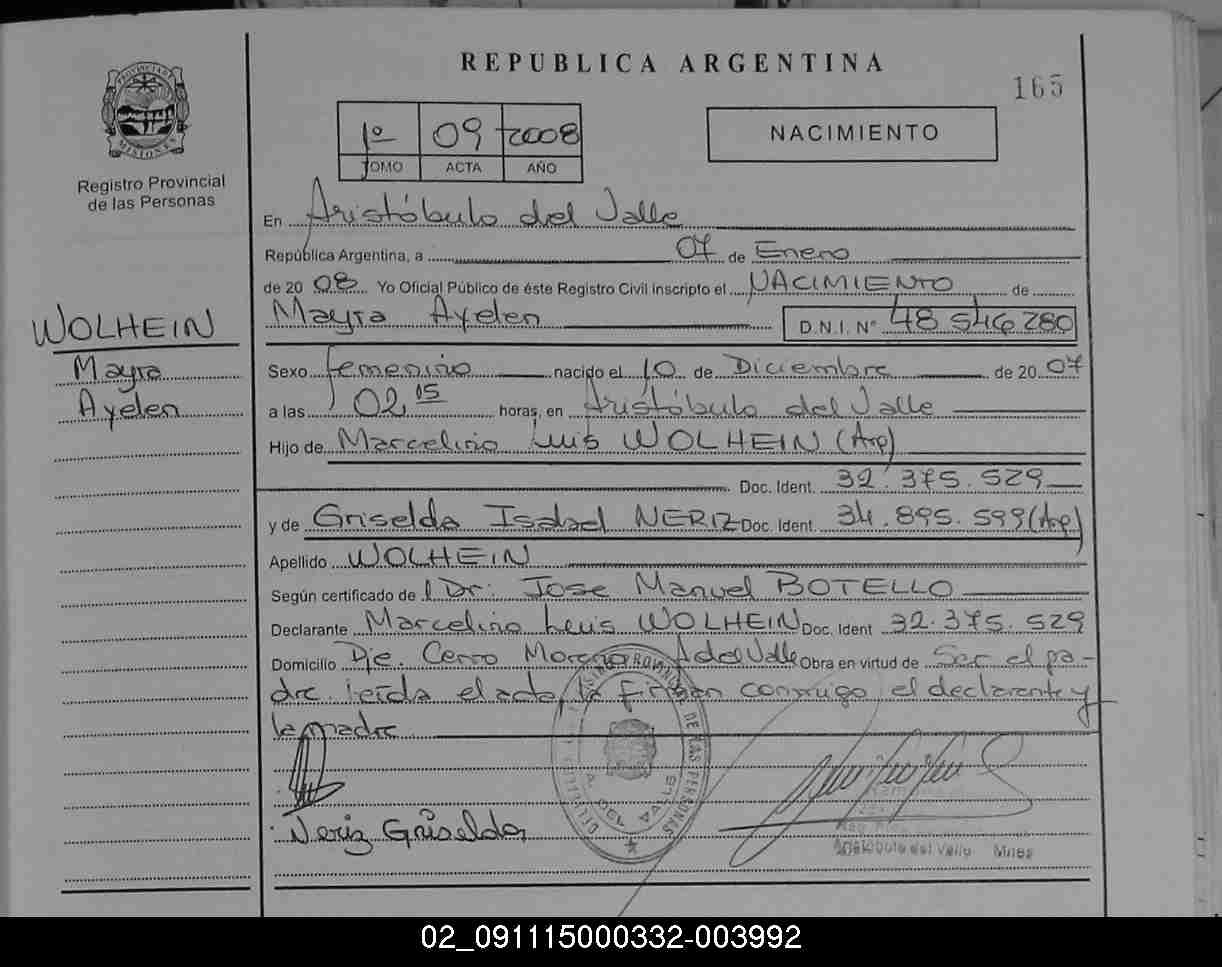 REPUBLICA ARGENTINA
165
PROVINCIA DE MISIONES
Registro Provincial
de las Personas
1º 09 2008
TOMO ACTA AÑO
NACIMIENTO
En Aristóbulo del Valle
República Argentina, a 07 de Enero
de 2008 Yo Oficial Público de éste Registro Civil inscripto el NACIMIENTO de
Mayra Ayelen D.N.I. Nº 48 546 280
WOLHEIN
Mayra
Ayelen
Sexo femenino nacido el 10 de Diciembre de 2007
a las 02 15 horas, en Aristóbulo del Valle
Hijo de Marcelino Luis WOLHEIN (Arg)
Doc. Ident. 32.375.529
y de Griselda Isabel NERIZ Doc. Ident. 34.895.599 (Arg)
Apellido WOLHEIN
Según certificado de l Dr. Jose Manuel BOTELLO
Declarante Marcelino Luis WOLHEIN Doc. Ident 32.375.529
Domicilio Pje. Cerro Moreno A del Valle Obra en virtud de Ser el pa-
dre. leída el acta, la firman conmigo el declarante y
la madre
Neriz Griselda
PROVINCIAL DE LAS PERSONAS
A. DEL VALLE
Aristóbulo del Valle Mnes
02_091115000332-003992